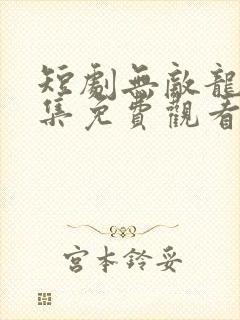 短劇無敵龍
集免費觀看
宮本鈴妥